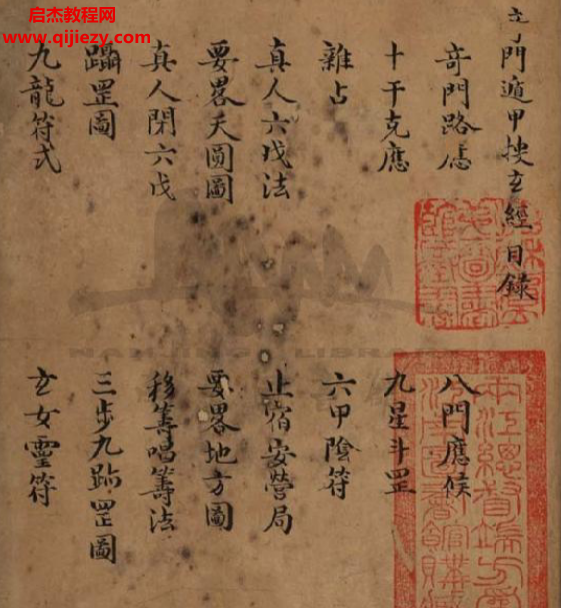 启杰易经网
www.qijiezy.com
門遁甲玄經目錄
奇門路憑 八門應候
十干克應 九星斗罡
雜占 六甲陰符
真人六戊法 止宿安營局
要畧天圓圖 要畧地方圖
真人閉六戊 移籌唱籌法
躡罡圖 三步九跡罡圖
九龍符式 玄女靈符
兩江總督端方為
江南圖書館購藏
NANJING LIBRARY